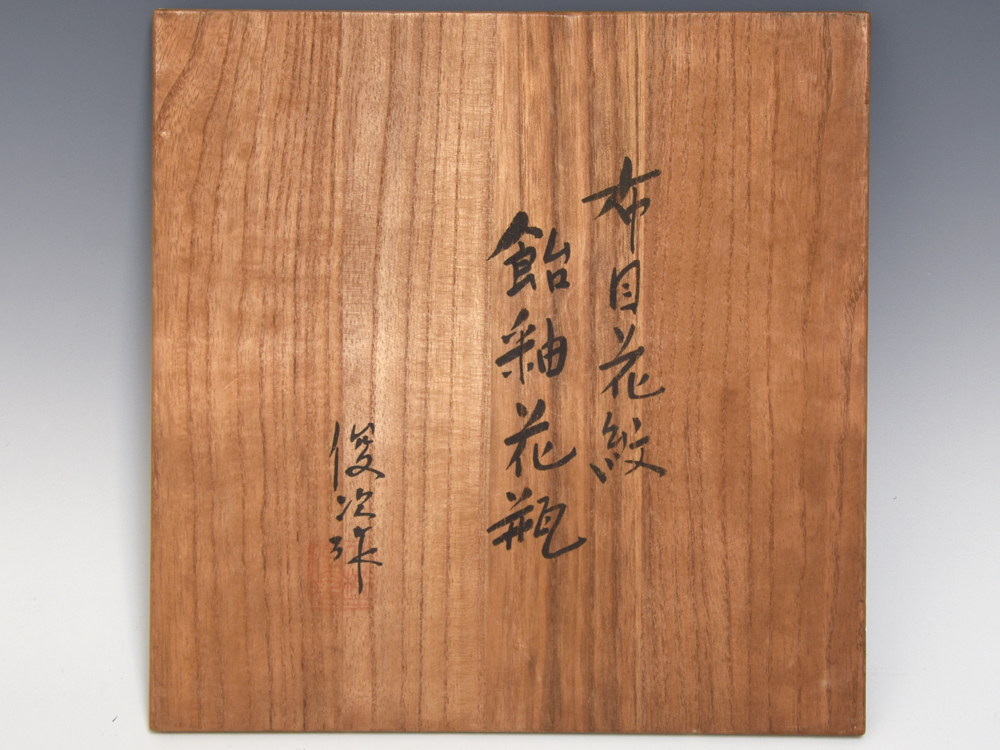 布目花紋
飴釉花瓶
俊次作